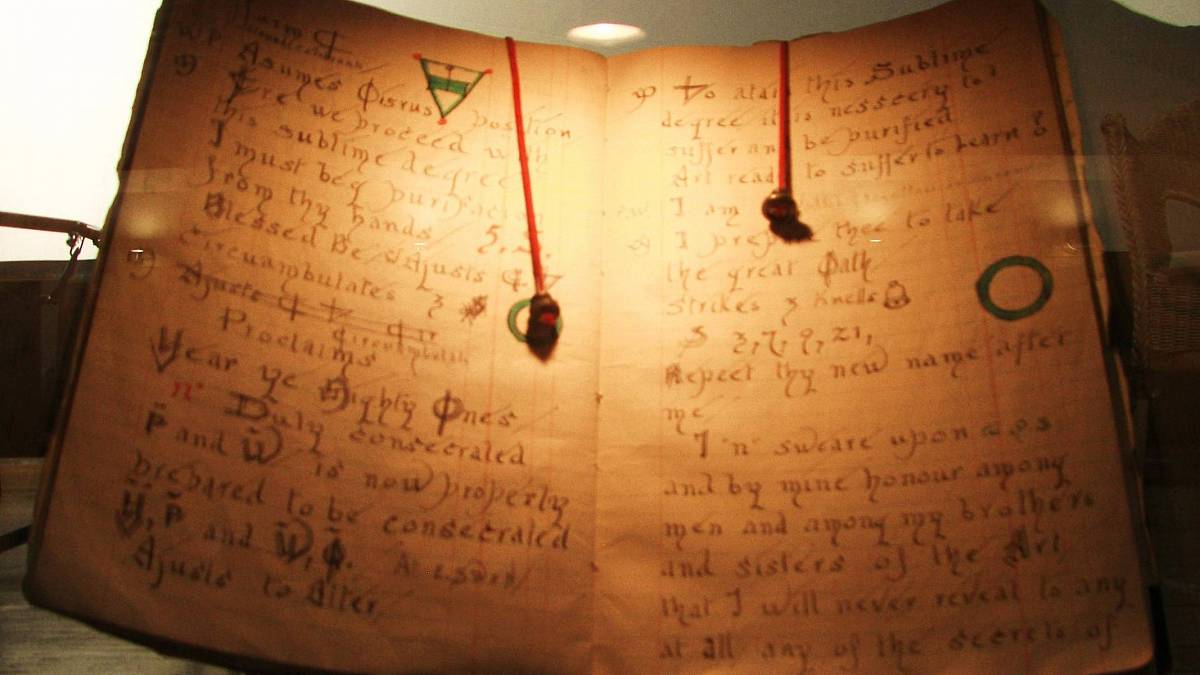 Asumes Osirus position
Ere we proceed with
this sublime degree
I must beg purification
from thy hands
Blessed Be & Ajusts
Circuambulates 3
Ajusts
Proclaims
Hear ye Mighty Ones
n Duly consecrated
P and W is now properly
prepared to be consecrated
H, P and W, O.
Ajusts to Alter
To atain this Sublime
degree it is nessecry to
suffer and be purified
Art ready to suffer to Learn ?
I am
I prepare thee to take
the great Oath
Strikes 3 Knells
3, 7, 9, 21,
Repeet thy new name after
me
I "n" sweare upon
and by mine honour among
men and among my brothers
and sisters of the Art
that I will never reveal to any
at all any of the secrets of